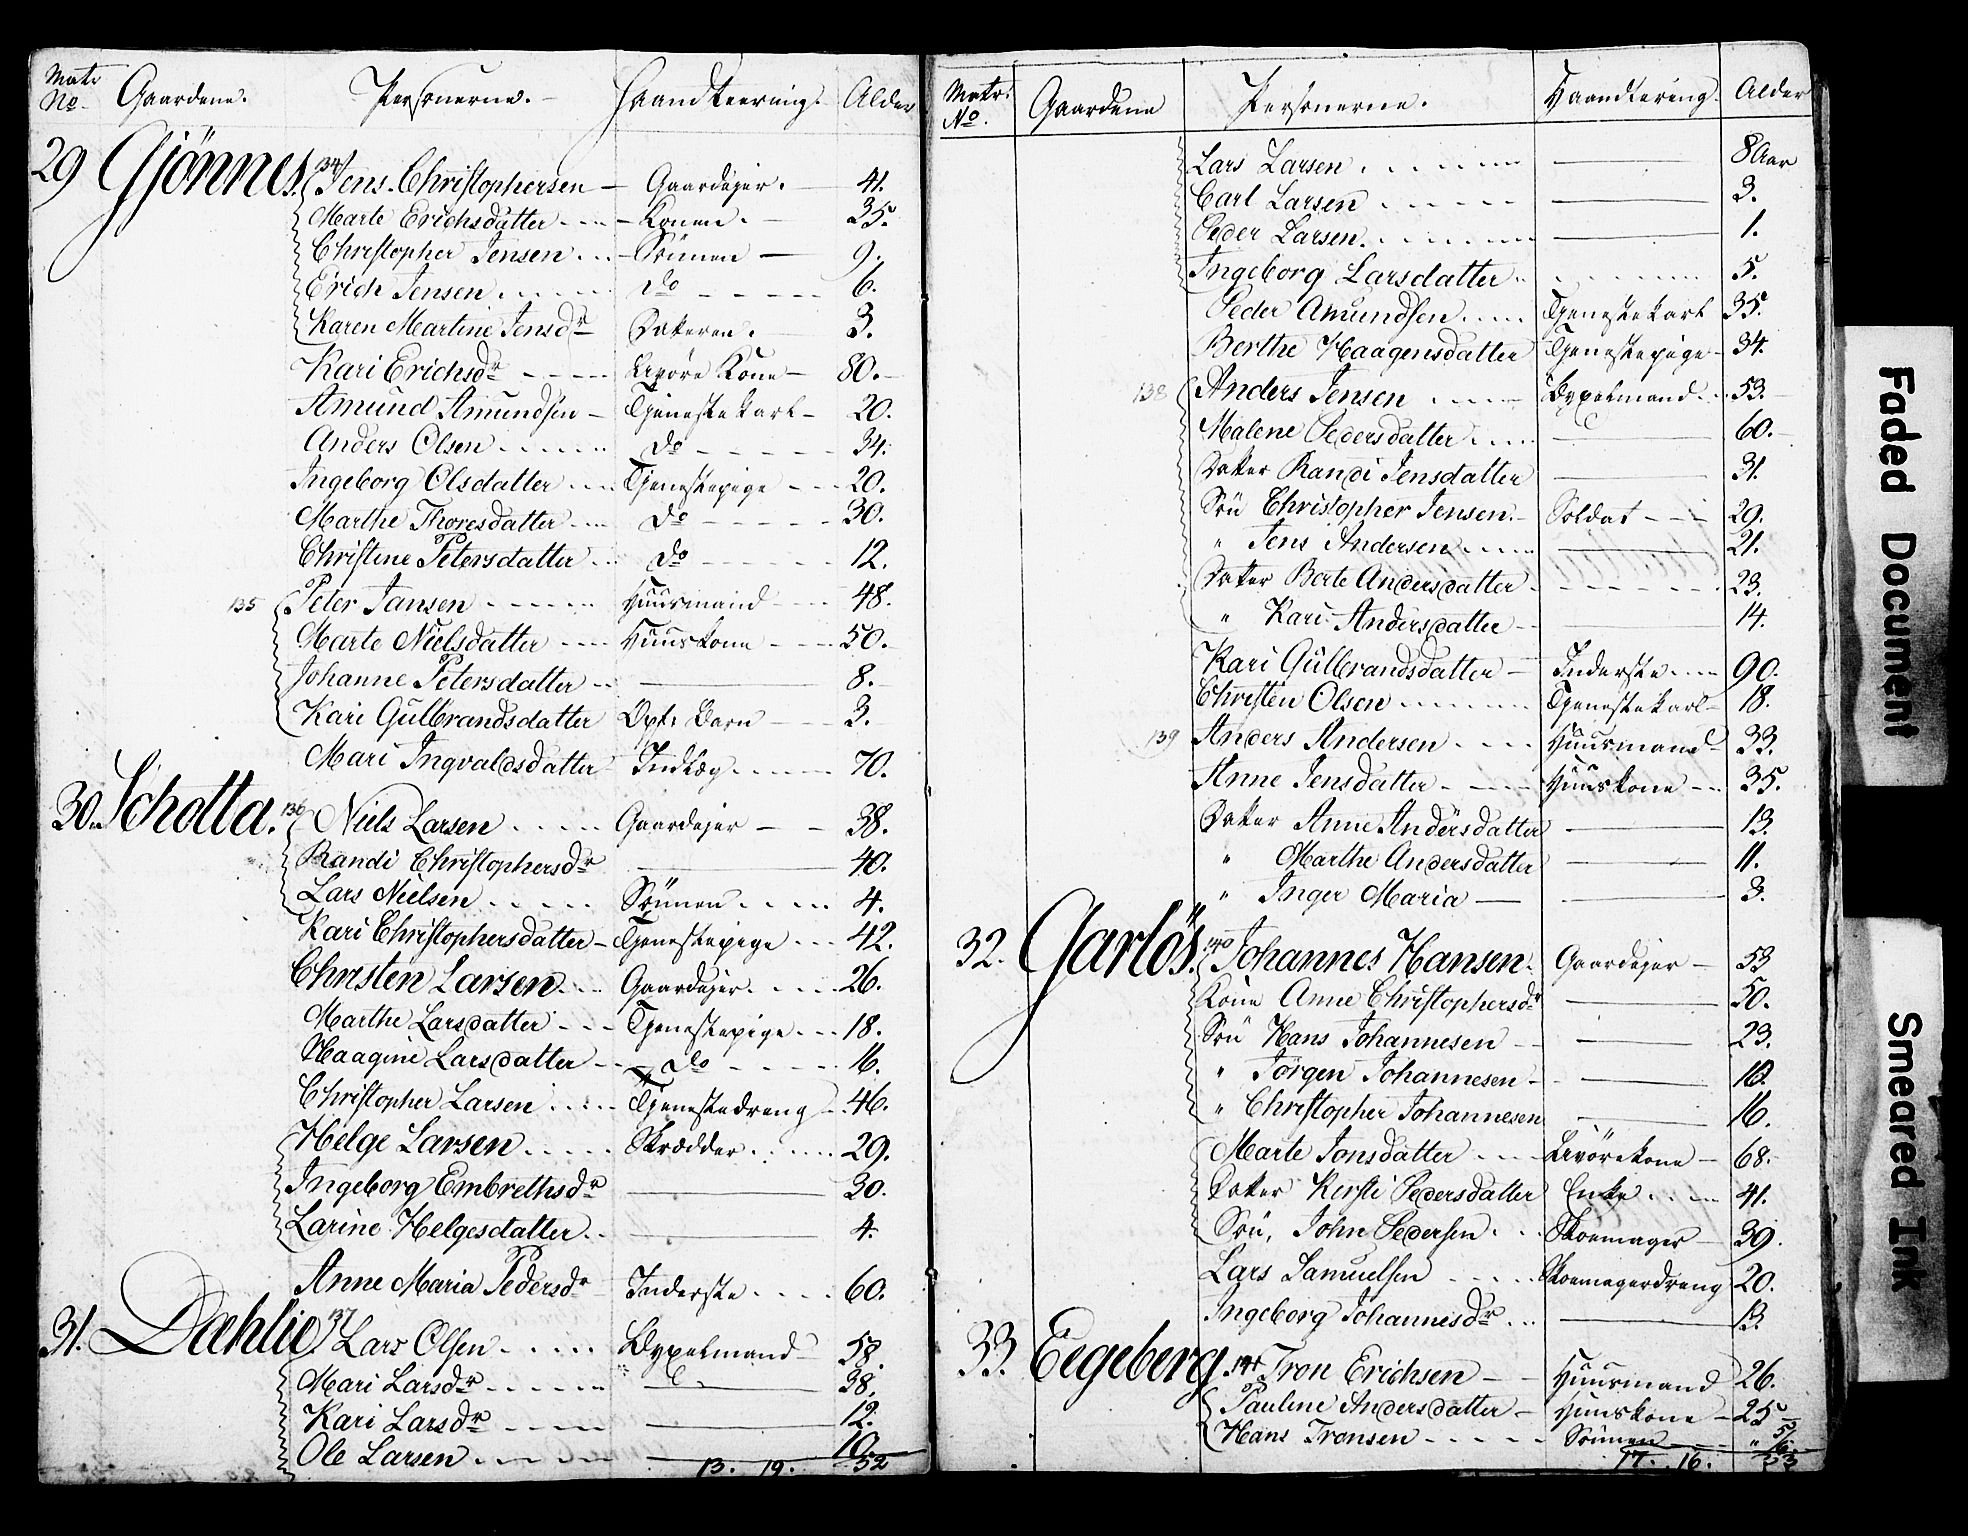 Matr No. Gaardene. Personerne. Haandteering. Alder
29 Gjönnes. 134 Jens Christophersen Gaardejer. 41.
Marte Erichsdatter Konen. 35.
Christopher Jensen Sönnen 9.
Erich Jensen do 6.
Karen Martine Jensdr Datteren. 3.
Kari Erichsdr Livöre Kone 80.
Amund Amundsen Tjenestekarl 20.
Anders Olsen do 34.
Ingeborg Olsdatter Tjenestepige 20.
Marthe Thoresdatter do 30.
Christine Petersdatter do 12.
135 Peter Jansen Huusmand 48.
Marte Nielsdatter Huuskone 50.
Johanne Petersdatter 8.
Kari Gulbrandsdatter Opf: Barn 3.
Mari Ingvaldsdatter Indlæg 70.
30. Schotta. 136 Niels Larsen Gaardejer 38.
Randi Christophersdr 40.
Lars Nielsen Sönnen 4.
Kari Christophersdatter Tjenestepige 42.
Christen Larsen Gaardejer 26.
Marthe Larsdatter Tjenestepige 18.
Haagine Larsdatter do 16.
Christopher Larsen Tjenestedreng 46.
Helge Larsen Skrædder 29.
Ingeborg Embrethsdr 30.
Larine Helgesdatter 4.
Anne Maria Pedersdr Inderste 60.
31. Dæhlie 137 Lars Olsen Bygselmand 58.
Mari Larsdr 38.
Kari Larsdr 12.
Ole Larsen 10.
13. 19. 32
Matr: No. Gaardene Personerne. Haandtering. Alder
Lars Larsen 8 Aar
Carl Larsen 3.
Peder Larsen 1.
Ingeborg Larsdatter 5.
Peder Amundsen Tjenestekarl 35.
Berthe Haagensdatter Tjenestepige 34.
138 Anders Jensen Bygselmand 53.
Malene Pedersdatter 60.
Datter Randi Jensdatter 31.
Sön Christopher Jensen Soldat 29.
" Jens Andersen 21.
Datter Berte Andersdatter 23.
" Kari Andersdatter 14.
Kari Gulbrandsdatter Inderste 90.
Christen Olsen Tjenestekarl 18.
139 Anders Andersen Huusmand 33.
Anne Jensdatter Huuskone 35.
Datter Anne Andersdatter 13.
" Marthe Andersdatter 11.
" Inger Maria 3.
32. Garlös. 140 Johannes Hansen Gaardejer 53
Kone Anne Christophersdr 50.
Sön Hans Johannesen 23.
" Jörgen Johannesen 10.
" Christopher Johannesen 16.
Marte Jonsdatter Livörekone 68.
Datter Kersti Pedersdatter Enke 41.
Sön, John Pedersen Skoemager 39.
Lars Samuelsen Skoemagerdreng 20.
Ingeborg Johannesdr 13.
33. Eegeberg. 141 Tron Erichsen Huusmand 26.
Pauline Andersdatter Huuskone 25
Hans Tronsen Sönnen
17. 16. 33
Faded Document
Smeared Ink